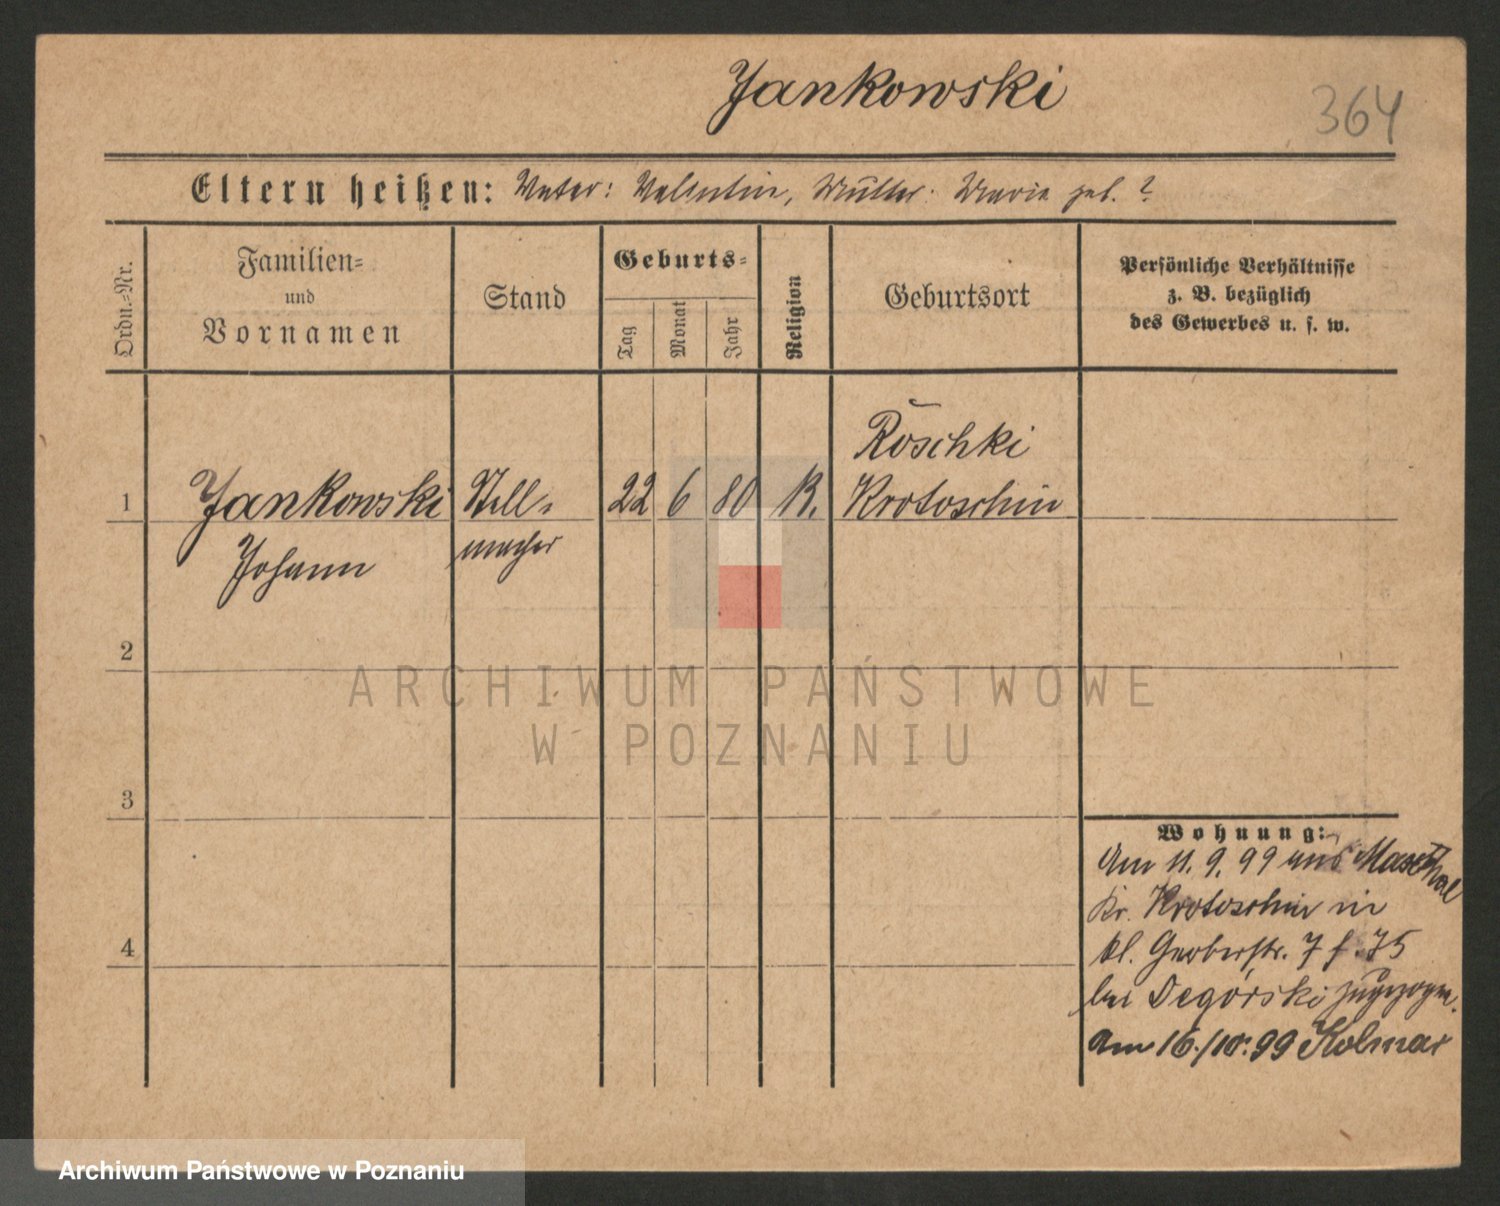 Jankowski
364
Eltern heißen: Vater: Valentin, Mutter: Marie geb. ?
Ordn.-Nr.
Familien-
und
Vornamen
Stand
Geburts-
Tag
Monat
Jahr
Religion
Geburtsort
Persönliche Verhältnisse
z. B. bezüglich
des Gewerbes u. s. w.
Roschki
1 Jankowski Stell- 22 6 80 K. Krotoschin
Johann macher
2
ARCHIWUM PAŃSTWOWE
W POZNANIU
3
Wohnung:
Am 11. 9. 99 aus
Kr. Krotoschin in
kl. Gerberstr. 7 f. 75
4
bei Degórski zugezogen.
Am 16./10. 99 Kolmar
Archiwum Państwowe w Poznaniu